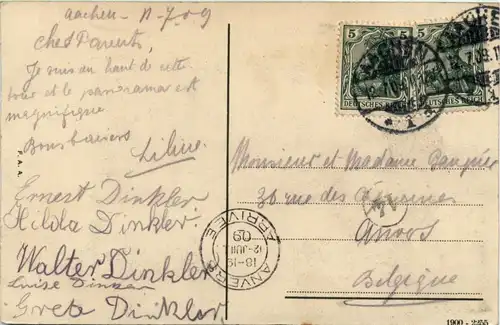 Aachen 11-7-09
Chers Parents,
Je suis au haut de cette
tour et le panorama est
magnifique
Bons baisers
Liline
Ernest Dinkler
Hilda Dinkler
Walter Dinkler
Luise Dinkler
Greta Dinkler
P. A. A.
5 5
DEUTSCHES REICH DEUTSCHES REICH
AACHEN
1
ANVERS
18-19
12-JUIL
09
ARRIVEE
Monsieur et Madame
30 rue des
Anvers
Belgique
1900 - 2255